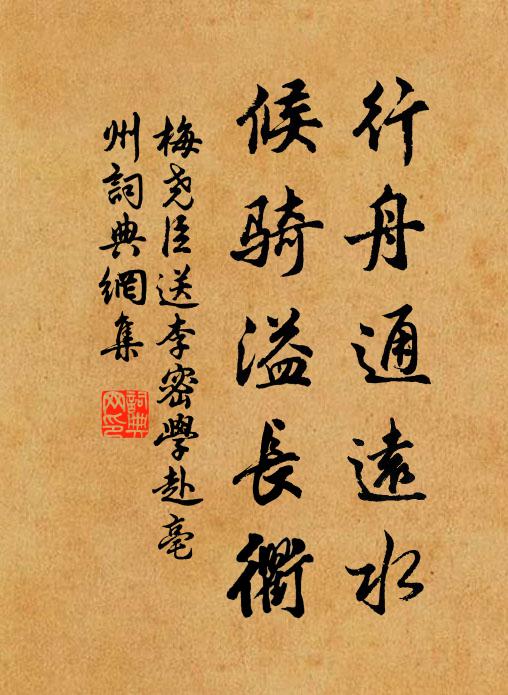 行舟通遠水
候騎溢長衢
梅尧臣送李密學赴亳
州詞典網集
詞典
网印